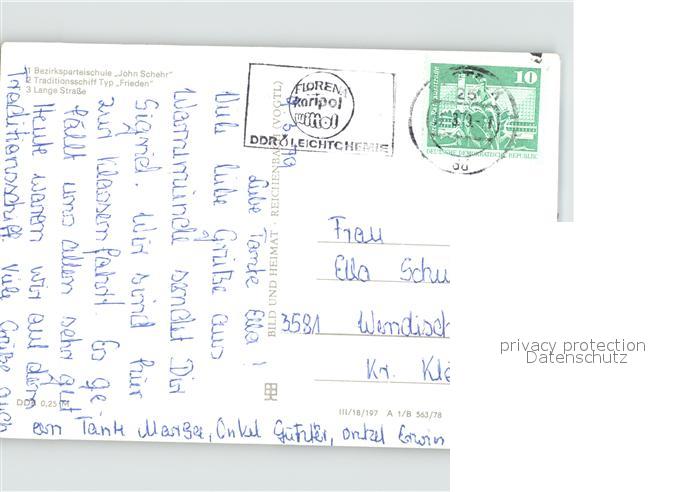 1 Bezirksparteischule „John Schehr"
2 Traditionsschiff Typ „Frieden"
3 Lange Straße
FLORENA
wittol
DDR LEICHTCHEMIE
10
DEUTSCHE DEMOKRATISCHE REPUBLIK
BILD UND HEIMAT · REICHENBACH (VOGTL)
Liebe Tante Ella!
Viele liebe Grüße aus
Warnemünde sendet Dir
Sigrid. Wir sind hier
zur Klassenfahrt. Es ge-
fällt uns allen sehr gut
Heute waren wir auf dem
Traditionsschiff. Viele Grüße auch
an Tante Marga, Onkel Günter, Onkel Erwin
Frau
Ella Schu
3581 Wendisch
Kr. Klö
DDR 0,25 M
III/18/197 A 1/B 563/78
privacy protection
Datenschutz